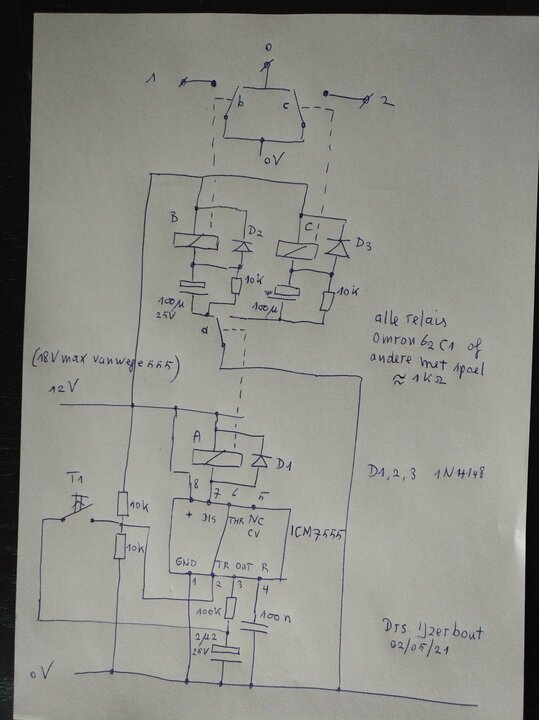 0
1
2
b
c
0V
B
D2
C
D3
10K
10K
100µ
25V
100µ
a
alle relais
Omron G2C1 of
andere met spoel
≈ 1KΩ
(18V max vanwege 555)
12V
A
D1
D1,2,3 1N4148
T1
8
7
6
5
+
DIS
THR
NC
CV
ICM7555
10K
10K
GND
TR
OUT
R
1
2
3
4
100K
100n
2µ2
25V
Drs. IJzerbout
02/05/21
0V